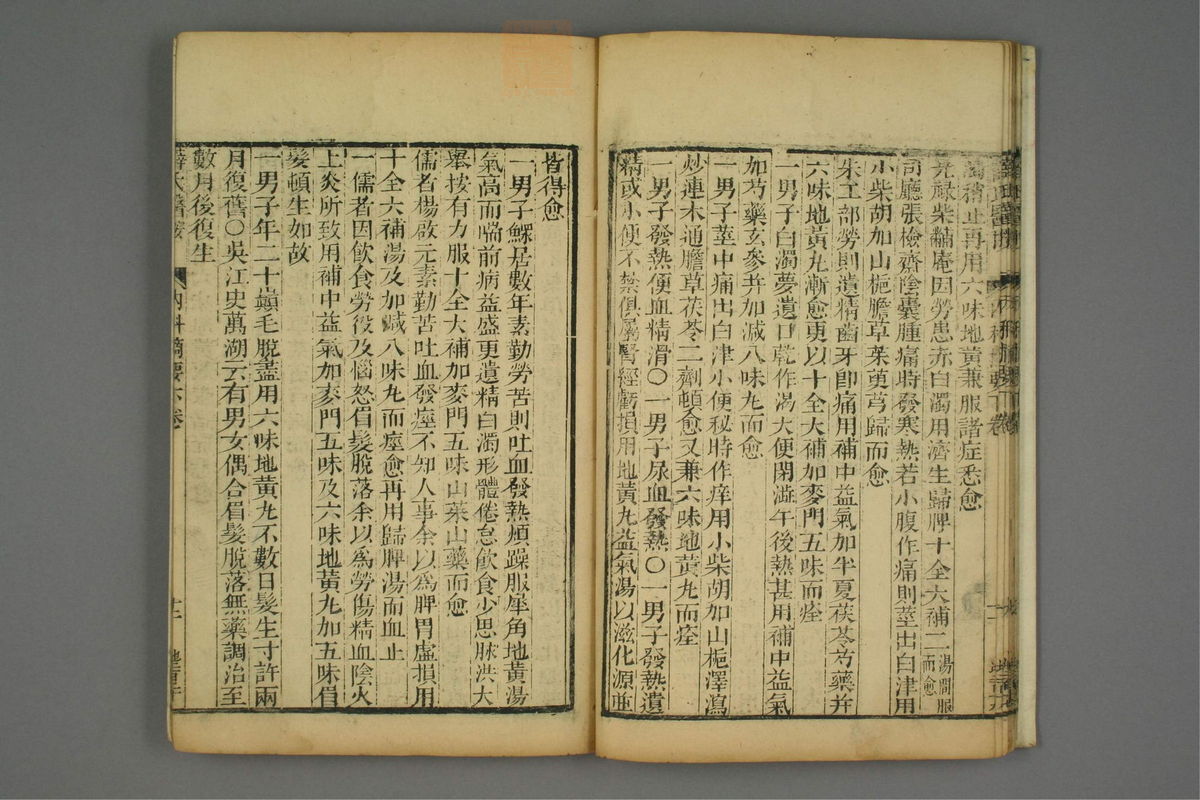 濁稍止再用六味地黃兼服諸症悉愈
光祿柴黼庵因勞患赤白濁用濟生歸脾十全大補二湯間服而愈
司廳張檢齋陰囊腫痛時發寒熱若小腹作痛則莖出白津用
小柴胡加山梔膽草茱萸芎歸而愈
朱工部勞則遺精齒牙卽痛用補中益氣加半夏茯苓芍藥并
六味地黃丸漸愈更以十全大補加麥門五味而痊
一男子白濁夢遺口乾作渴大便閉澁午後熱甚用補中益氣
加芍藥玄參并加減八味丸而愈
一男子莖中痛出白津小便秘時作痒用小柴胡加山梔澤瀉
炒連木通膽草茯苓二劑頓愈又兼六味地黃丸而痊
一男子發熱便血精滑〇一男子尿血發熱〇一男子發熱遺
精或小便不禁俱屬腎經虧損用地黃丸益氣湯以滋化源並
皆得愈
一男子鰥居數年素勤勞苦則吐血發熱煩躁服犀角地黃湯
氣高而喘前病益盛更遺精白濁形體倦怠飲食少思脉洪大
舉按有力服十全大補加麥門五味山茱山藥而愈
儒者楊啟元素勤苦吐血發痙不知人事余以爲脾胃虛損用
十全大補湯及加減八味丸而痙愈再用歸脾湯而血止
一儒者因飲食勞役及惱怒眉髮脫落余以爲勞傷精血陰火
上炎所致用補中益氣加麥門五味及六味地黃丸加五味眉
髮頓生如故
一男子年二十巔毛脫盡用六味地黃丸不數日髮生寸許兩
月復舊〇吳江史萬湖云有男女偶合眉髮脫落無藥調治至
數月後復生
薛氏醫按
內科摘要下卷
十二